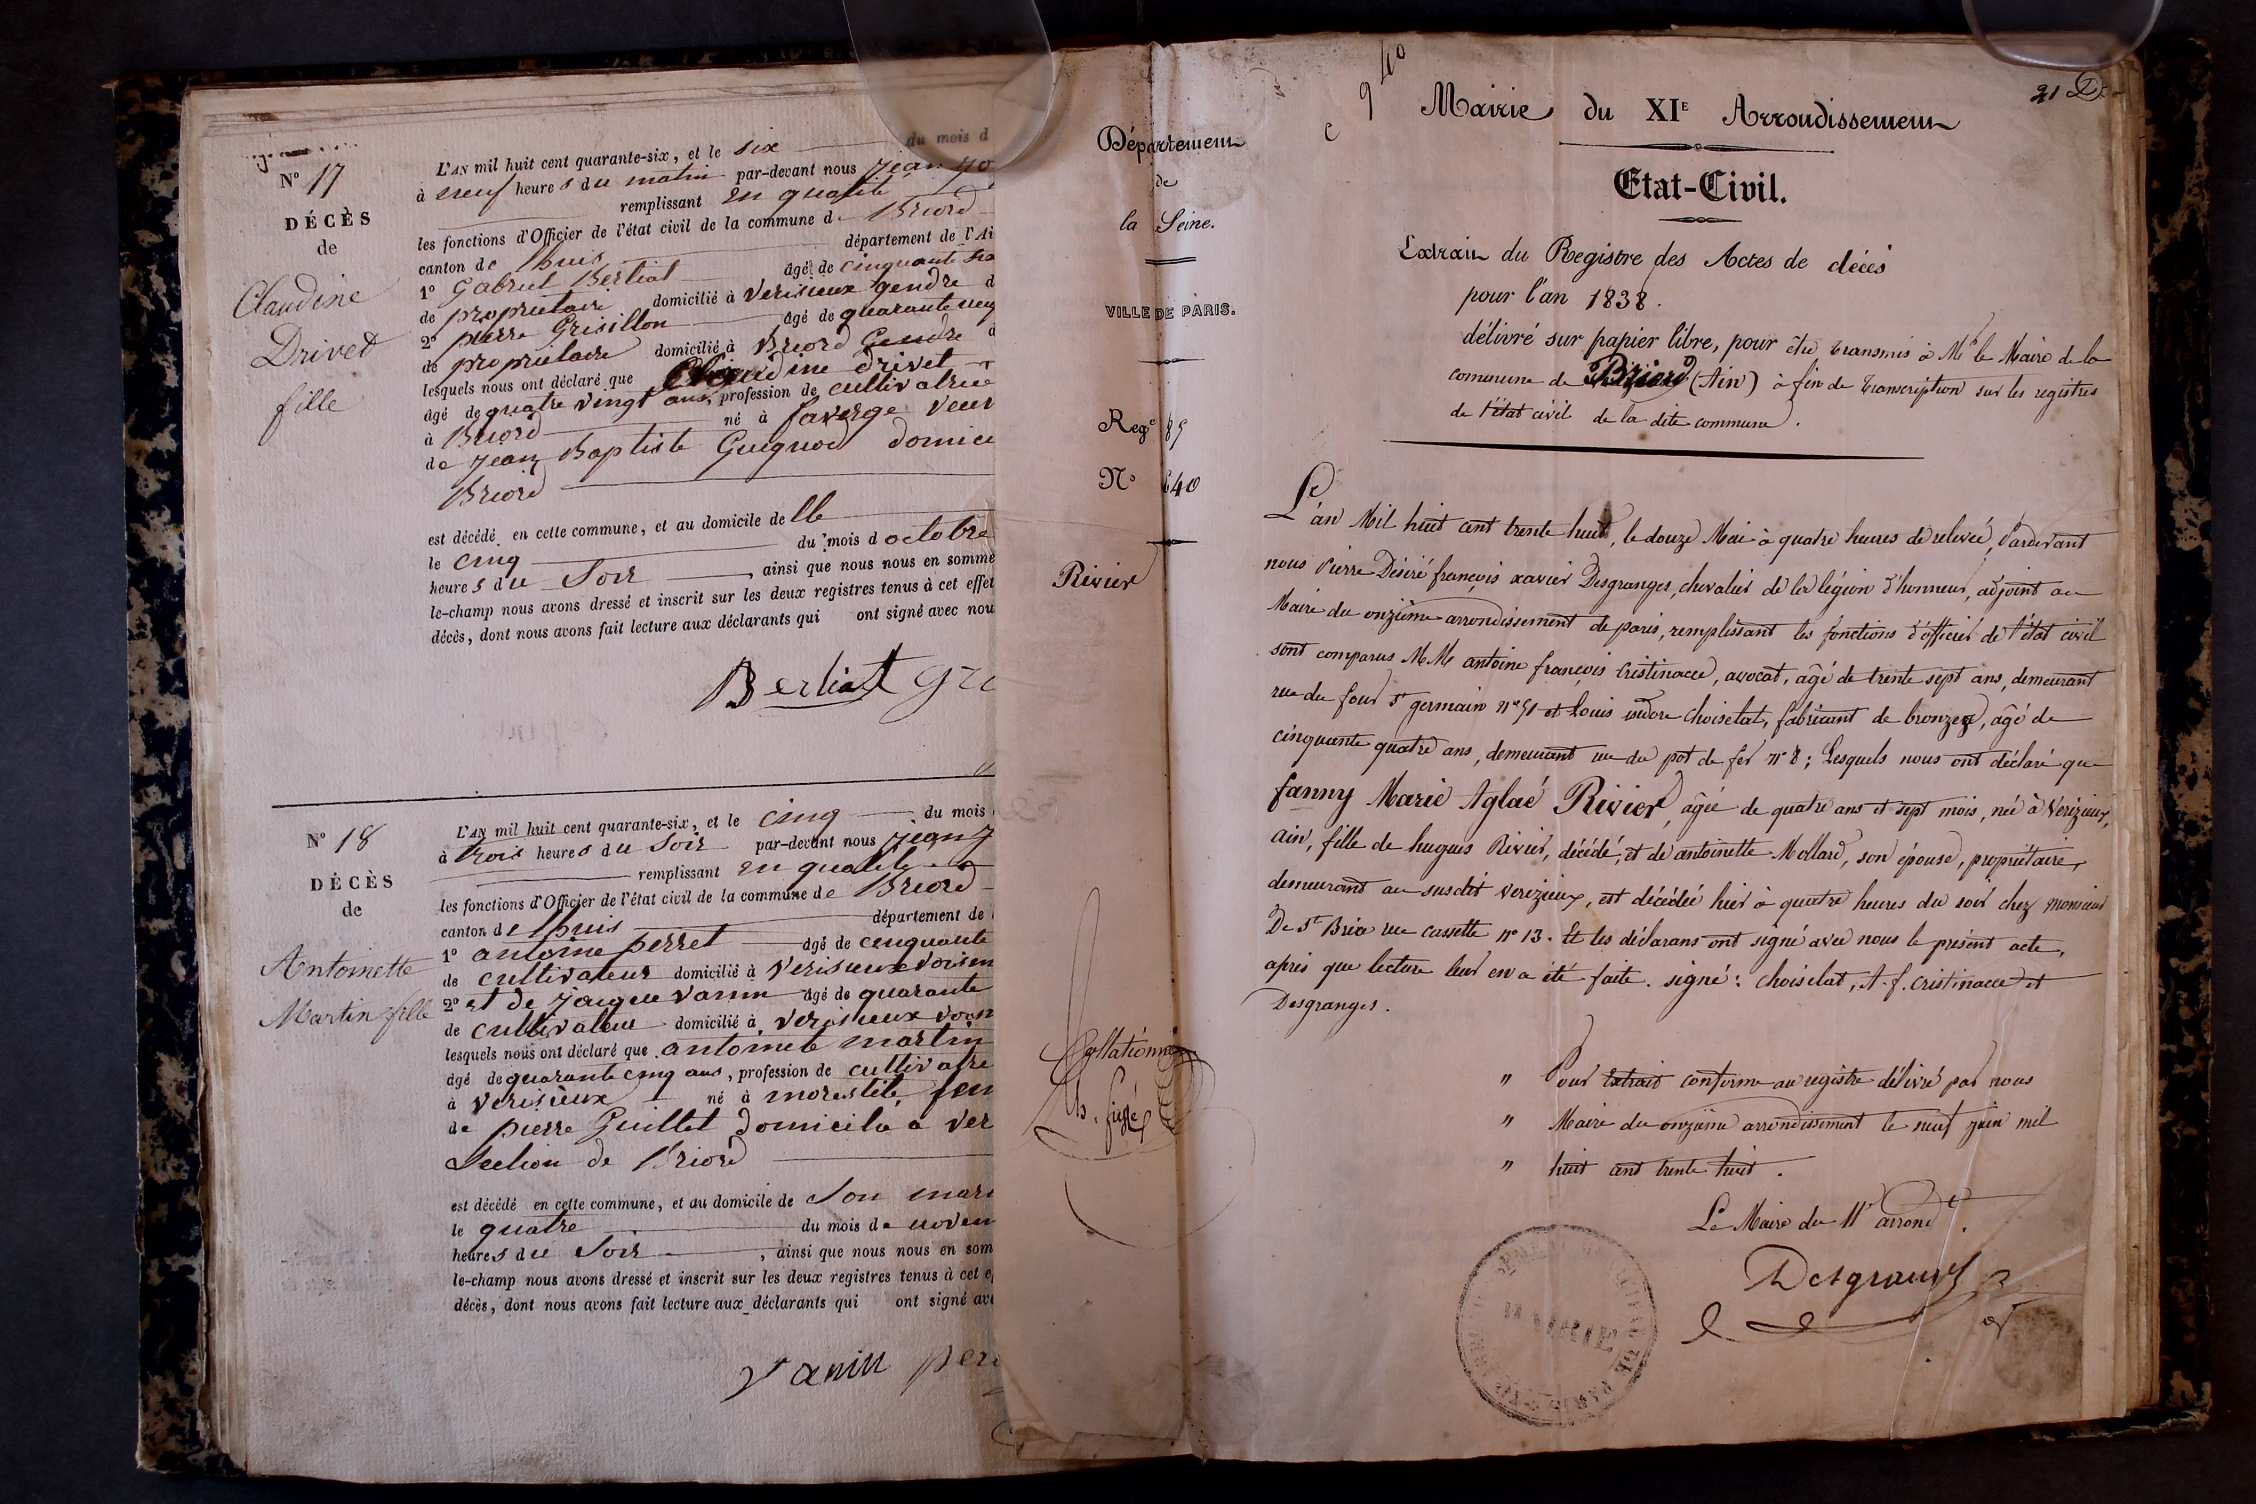 N° 17
DÉCÈS
de
Claudine
Drivet
fille
L'AN mil huit cent quarante-six, et le six du mois d
à neuf heures du matin par-devant nous Jean
remplissant en qualité
les fonctions d'Officier de l'état civil de la commune de Briord
canton de lhuis département de l'Ai
1° Gabriel Berliat âgé de cinquante
de propriétaire domicilié à Verisieux gendre d
2° pierre Grisillon âgé de quarante neuf
de propriétaire domicilié à Briord Gendre d
lesquels nous ont déclaré que Claudine drivet
âgé de quatre vingt ans, profession de cultivatrice
à Briord né à faverge veuv
de Jean Baptiste Guignod domici
Briord
est décédé en cette commune, et au domicile de
le cinq du mois d octobre
heures du Soir, ainsi que nous nous en somme
le-champ nous avons dressé et inscrit sur les deux registres tenus à cet effet
décès, dont nous avons fait lecture aux déclarants qui ont signé avec nou
Berliat gri
N° 18
DÉCÈS
de
Antoinette
Martin fille
L'AN mil huit cent quarante-six, et le cinq du mois
à trois heures du Soir par-devant nous Jean
remplissant en qualité
les fonctions d'Officier de l'état civil de la commune de Briord
canton de lhuis département de
1° antoine perret âgé de cinquante
de cultivateur domicilié à Verisieux voisin
2° et de Jaque vanin âgé de quarante
de cultivateur domicilié à verisieux voisin
lesquels nous ont déclaré que antoinete martin
âgé de quarante cinq ans, profession de cultivatri
à verisieux né à morestele, fem
de pierre Guillet domicilié à ver
Section de Briord
est décédé en cette commune, et au domicile de Son mari
le quatre du mois de novem
heures du Soir, ainsi que nous nous en som
le-champ nous avons dressé et inscrit sur les deux registres tenus à cet e
décès, dont nous avons fait lecture aux déclarants qui ont signé ave
vanin per
Département
de
la Seine.
VILLE DE PARIS.
Reg.e 89
N° 640
Rivier
Collationné
940
21
Mairie du XIE Arrondissement
Etat-Civil.
Extrait du Registre des Actes de décès
pour l'an 1838.
délivré sur papier libre, pour être transmis à Mr le Maire de la
commune de Briord (Ain) à fin de transcription sur les registres
de l'état civil de la dite commune.
L'an Mil huit cent trente huit, le douze Mai à quatre heures de relevée, Pardevant
nous Pierre Désiré françois xavier Desgranges, chevalier de la légion d'honneur, adjoint au
Maire du onzième arrondissement de paris, remplissant les fonctions d'officier de l'état civil
sont comparus M.M. antoine françois Cristinacce, avocat, âgé de trente sept ans, demeurant
rue du four St germain n° 51 et Louis isidore Choiselat, fabricant de bronzes, âgé de
cinquante quatre ans, demeurant rue du pot de fer n° 8; Lesquels nous ont déclaré que
fanny Marie Aglaé Rivier, âgée de quatre ans et sept mois, née à Verizieux,
ain, fille de hugues Rivier, décédé, et de antoinette Mollard, son épouse, propriétaire,
demeurant au susdit verizieux, est décédée hier à quatre heures du soir chez monsieur
De St Brice rue cassette n° 13. Et les déclarans ont signé avec nous le présent acte,
après que lecture leur en a été faite. signé: choiselat, A. f. cristinacce et
Desgranges.
" Pour Extrait conforme au registre délivré par nous
" Maire du onzième arrondissement le neuf juin mil
" huit cent trente huit.
Le Maire du 11e arrond.t
Desgranges
MAIRIE